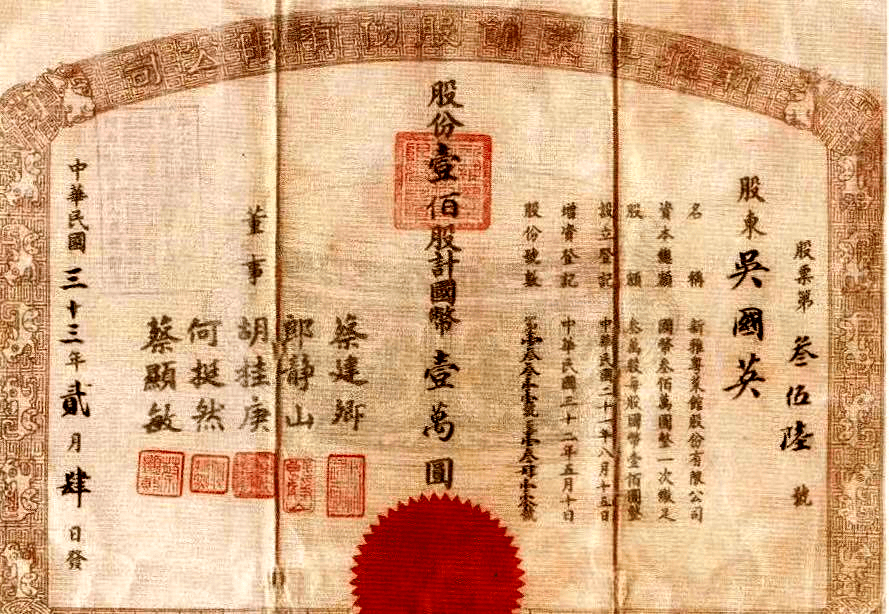 新雅粵菜館股份有限公司
股票第叁伍陸號
股東吳國英
名稱 新雅粵菜館股份有限公司
資本總額 國幣叁佰萬圓整一次繳足
股額 叁萬股每股國幣壹佰圓整
設立登記 中華民國二十一年八月十五日
增資登記 中華民國三十二年五月十日
股份號數
股份壹佰股計國幣壹萬圓
董事
蔡建卿
郎静山
胡桂庚
何挺然
蔡顯敏
中華民國三十三年貳月肆日發